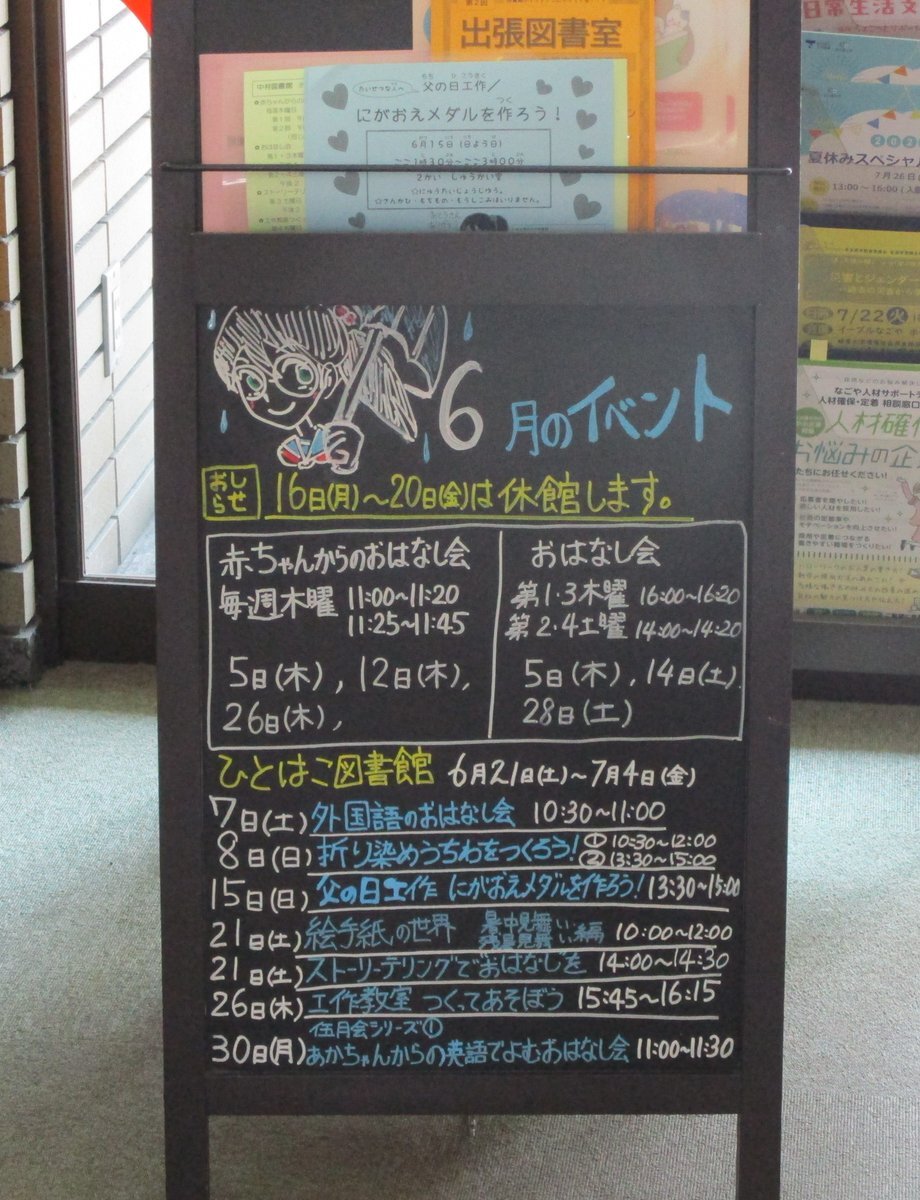 第2回
出張図書室
中村図書館
たいせつな人へ
父の日工作
にがおえメダルを作ろう!
6月15日(日よう日)
ごご1時30分~ごご3時00分
2かい しゅうかい室
☆にゅうたいじょうじゆう。
☆さんかひ・もちもの・もうしこみはいりません。
日常生活支
夏休みスペシャル
7月26日(
13:00~16:00(入
7/22火
イーブルなごや
なごや人材サポートデ
人材確保・定着 相談窓口
人材確保
お悩みの企
たちにお任せください!
6月のイベント
おしらせ
16日(月)~20日(金)は休館します。
赤ちゃんからのおはなし会
毎週木曜 11:00~11:20
11:25~11:45
5日(木),12日(木),
26日(木),
おはなし会
第1・3木曜 16:00~16:20
第2・4土曜 14:00~14:20
5日(木),14日(土)
28日(土)
ひとはこ図書館 6月21日(土)~7月4日(金)
7日(土)外国語のおはなし会 10:30~11:00
8日(日)折り染めうちわをつくろう!①10:30~12:00
②13:30~15:00
15日(日)父の日工作 にがおえメダルを作ろう!13:30~15:00
21日(土)絵手紙の世界 暑中見舞い残暑見舞い編 10:00~12:00
21日(土)ストーリーテリングでおはなしを 14:00~14:30
26日(木)工作教室 つくってあそぼう 15:45~16:15
伍月会シリーズ①
30日(月)あかちゃんからの英語でよむおはなし会 11:00~11:30